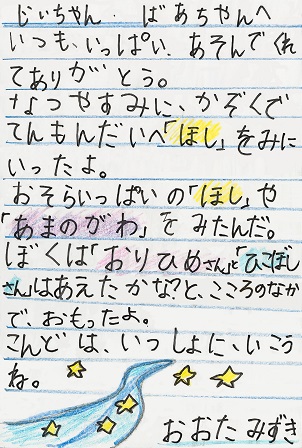 じいちゃん ばあちゃんへ
いつも、いっぱい、あそんでくれ
てありがとう。
なつやすみに、かぞくで
てんもんだいへ「ほし」をみに
いったよ。
おそらいっぱいの「ほし」や
「あまのがわ」をみたんだ。
ぼくは「おりひめさん」と「ひこぼし
さん」はあえたかな?と、こころのなか
で、おもったよ。
こんどは、いっしょに、いこう
ね。
おおたみずき